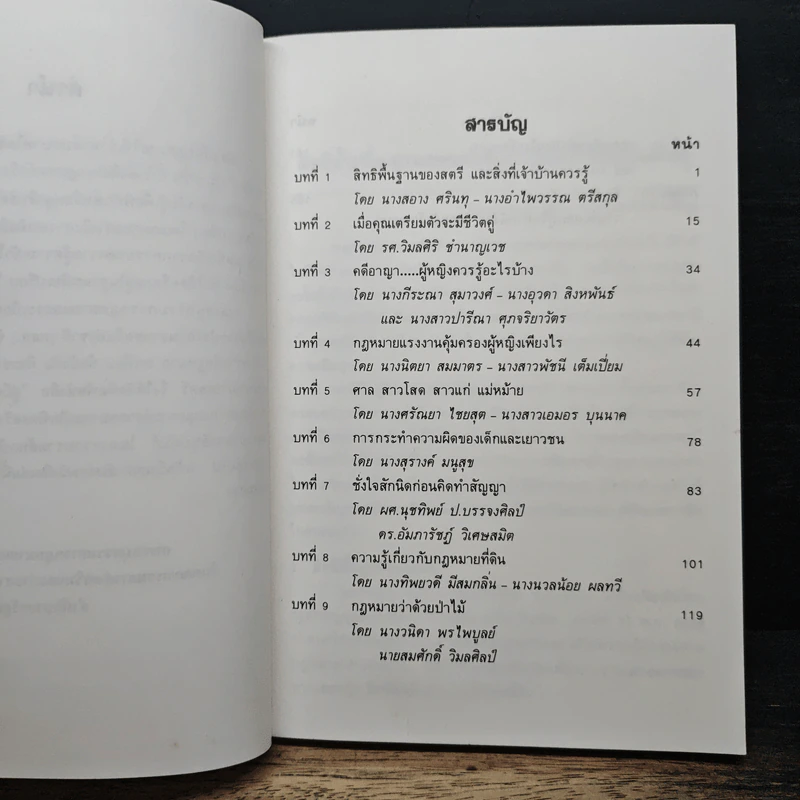 สารบัญ
หน้า
บทที่ 1 สิทธิพื้นฐานของสตรี และสิ่งที่เจ้าบ้านควรรู้ 1
โดย นางสอาง ศรินทุ - นางอำไพวรรณ ตรีสกุล
บทที่ 2 เมื่อคุณเตรียมตัวจะมีชีวิตคู่ 15
โดย รศ.วิมลศิริ ชำนาญเวช
บทที่ 3 คดีอาญา.....ผู้หญิงควรรู้อะไรบ้าง 34
โดย นางกีระณา สุมาวงศ์ - นางอุวดา สิงหพันธ์
และ นางสาวปารีณา ศุภจริยาวัตร
บทที่ 4 กฎหมายแรงงานคุ้มครองผู้หญิงเพียงไร 44
โดย นางนิตยา สมมาตร - นางสาวพัชนี เต็มเปี่ยม
บทที่ 5 ศาล สาวโสด สาวแก่ แม่หม้าย 57
โดย นางศรัณยา ไชยสุต - นางสาวเอมอร บุนนาค
บทที่ 6 การกระทำความผิดของเด็กและเยาวชน 78
โดย นางสุรางค์ มนูสุข
บทที่ 7 ชั่งใจสักนิดก่อนคิดทำสัญญา 83
โดย ผศ.นุชทิพย์ ป.บรรจงศิลป์
ดร.อัมภารัชฎ์ วิเศษสมิต
บทที่ 8 ความรู้เกี่ยวกับกฎหมายที่ดิน 101
โดย นางทิพยวดี มีสมกลิ่น - นางนวลน้อย ผลทวี
บทที่ 9 กฎหมายว่าด้วยป่าไม้ 119
โดย นางวนิดา พรไพบูลย์
นายสมศักดิ์ วิมลศิลป์